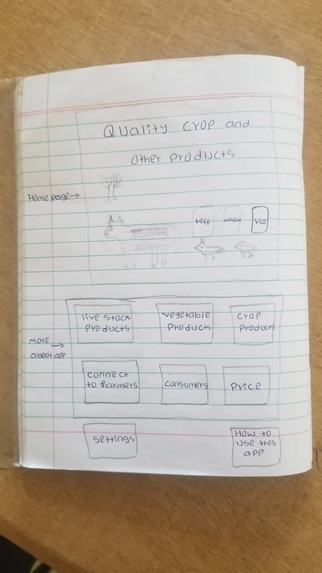 Quality crop and
other products
Home page →
teff
wheat
rice
live stock
products
vegetable
products
crop
products
more
about app
→
connect
to farmers
consumers
price
settings
How to
use this
app